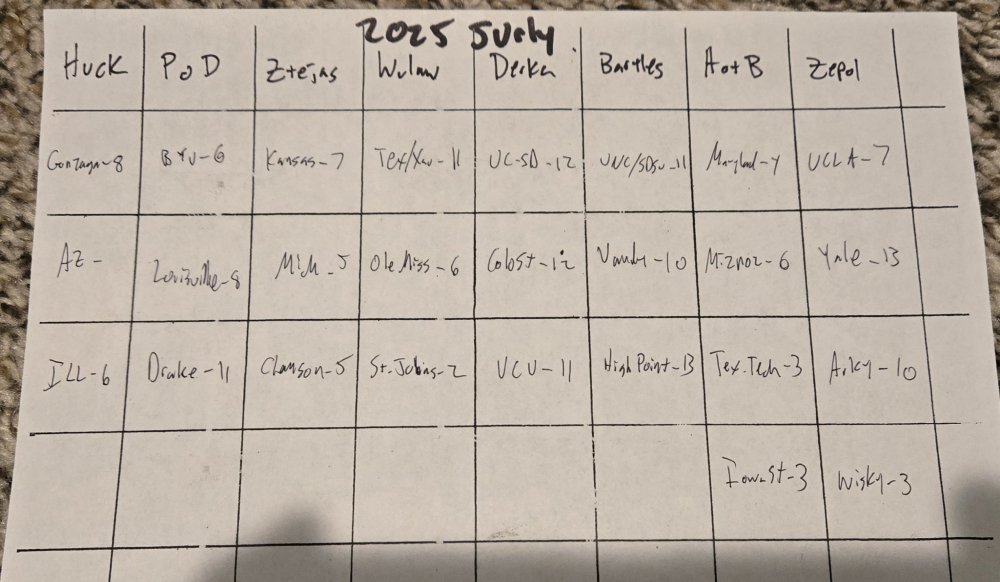 2025 Surly
Huck PoD Ztejas Wulaw Derka Bartles AotB Zepol
Gonzaga-8 BYU-6 Kansas-7 Tex/Xav-11 UC-SD-12 UNC/SDSU-11 Maryland-4 UCLA-7
AZ- Louisville-8 Mich-5 Ole Miss-6 ColoSt-12 Vandy-10 Mizzou-6 Yale-13
ILL-6 Drake-11 Clemson-5 St. Johns-2 VCU-11 High Point-13 Tex.Tech-3 Arky-10
Iowa St-3 Wisky-3